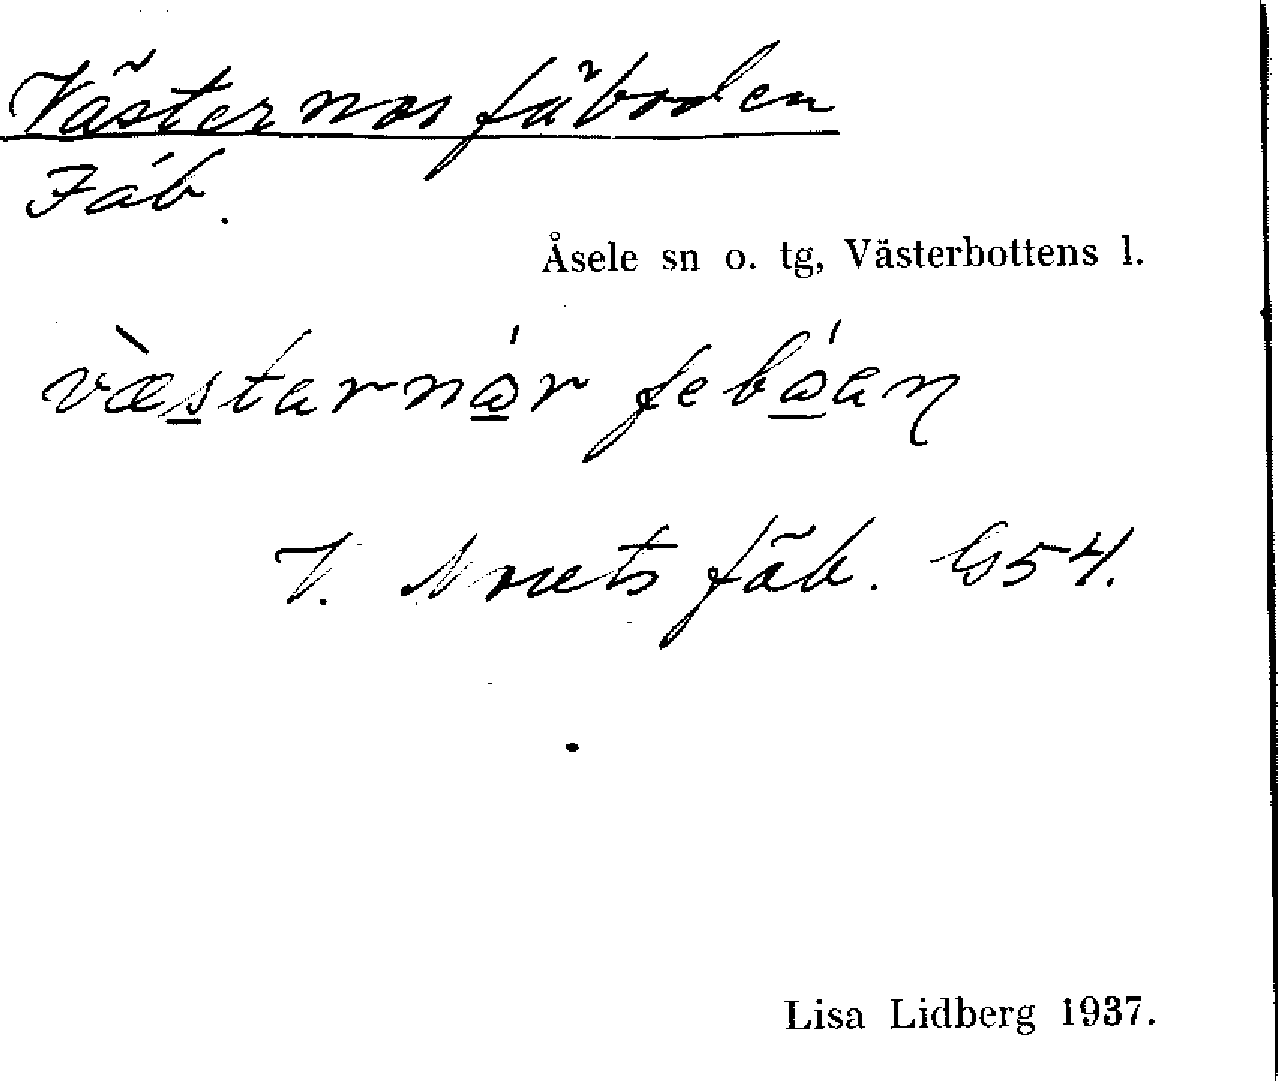 Västernorsfäboden
Fäb.
Åsele sn o. tg, Västerbottens l.
væstarnår febåan
V. Norets fäb. G54.
Lisa Lidberg 1937.